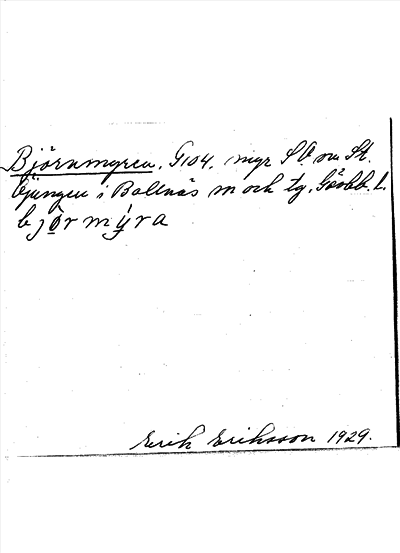 Björnmyren. G104. myr S.O. om St.
Öjungen i Bollnäs sn och tg. Gävleb. L.
bjőrmýra
Erik Eriksson 1929.